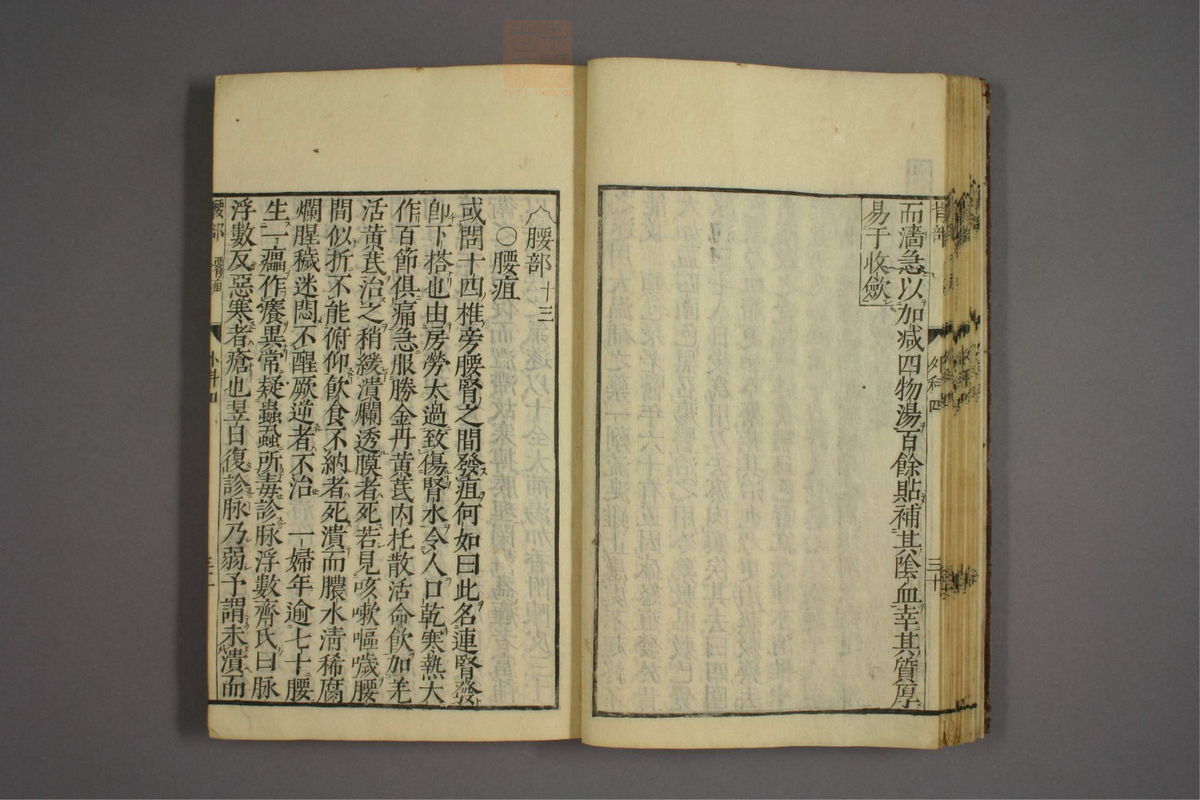 背部 外科四 三十
而濇急以加减四物湯百餘貼補其陰血幸其質厚
易于收斂
腰部十三
○腰疽
或問十四椎旁腰腎之間發疽何如曰此名連腎發
卽下搭也由房勞太過致傷腎水令人口乾寒熱大
作百節俱痛急服勝金丹黃芪內托散活命飲加羌
活黃芪治之稍緩潰爛透膜者死若見咳嗽嘔噦腰
間似折不能俯仰飲食不納者死潰而膿水清稀腐
爛腥穢迷悶不醒厥逆者不治 一婦年逾七十腰
生一癅作癢異常疑蟲蝨所毒診脉浮數齊氏曰脉
浮數反惡寒者瘡也翌日復診脉乃弱予謂未潰而
腰部 腰疽 外科四